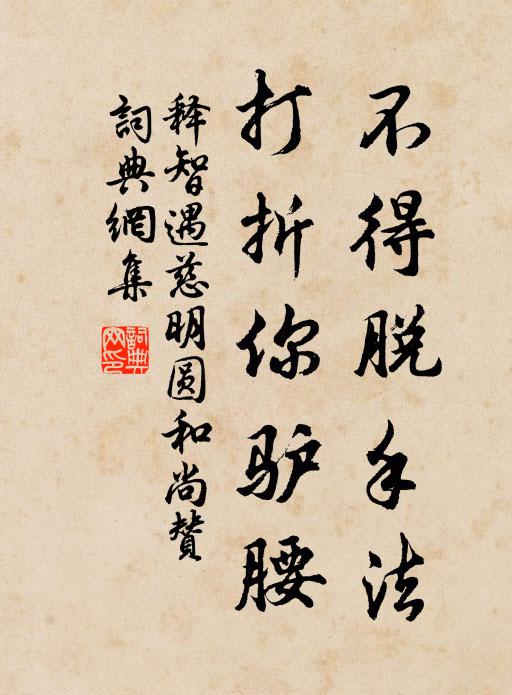 不得脱手法
打折你驴腰
释智遇慈明圆和尚赞
詞典網集
詞典網印